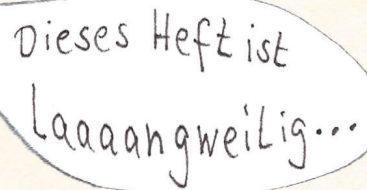 Dieses Heft ist
Laaaangweilig...